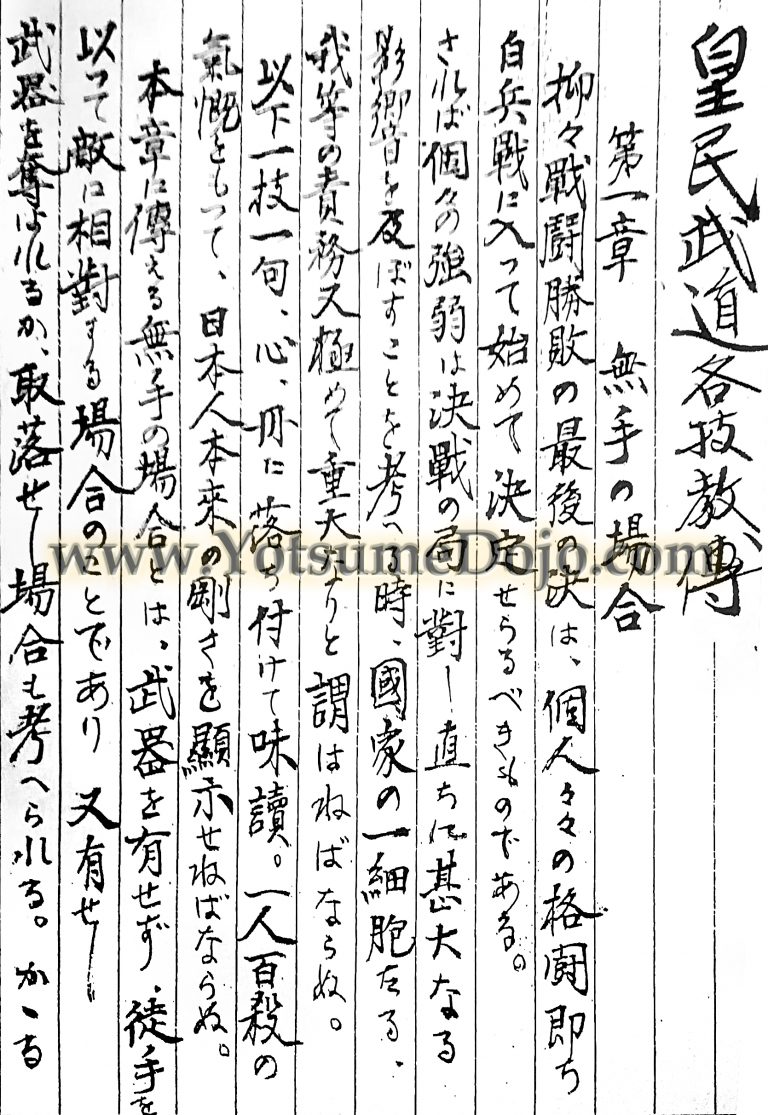 皇民武道各技教傳
第一章　無手の場合
抑々戰闘勝敗の最後の決は、個人々々の格闘即ち
白兵戰に入つて始めて決定せらるべきものである。
されば個々の強弱は決戰の局に對し直ちに甚大なる
影響を及ぼすことを考へる時、國家の一細胞たる、
我等の責務又極めて重大なりと謂はねばならぬ。
以下一技一句、心、丹に落ち付けて味讀。一人百殺の
氣慨をもつて、日本人本来の剛さを顯示せねばならぬ。
本章に傳える無手の場合とは、武器を有せず、徒手を
以つて敵に相對する場合のことであり 又有せし
武器を奪はれるか、取落せし場合も考へられる。かゝる
www.YotsumeDojo.com